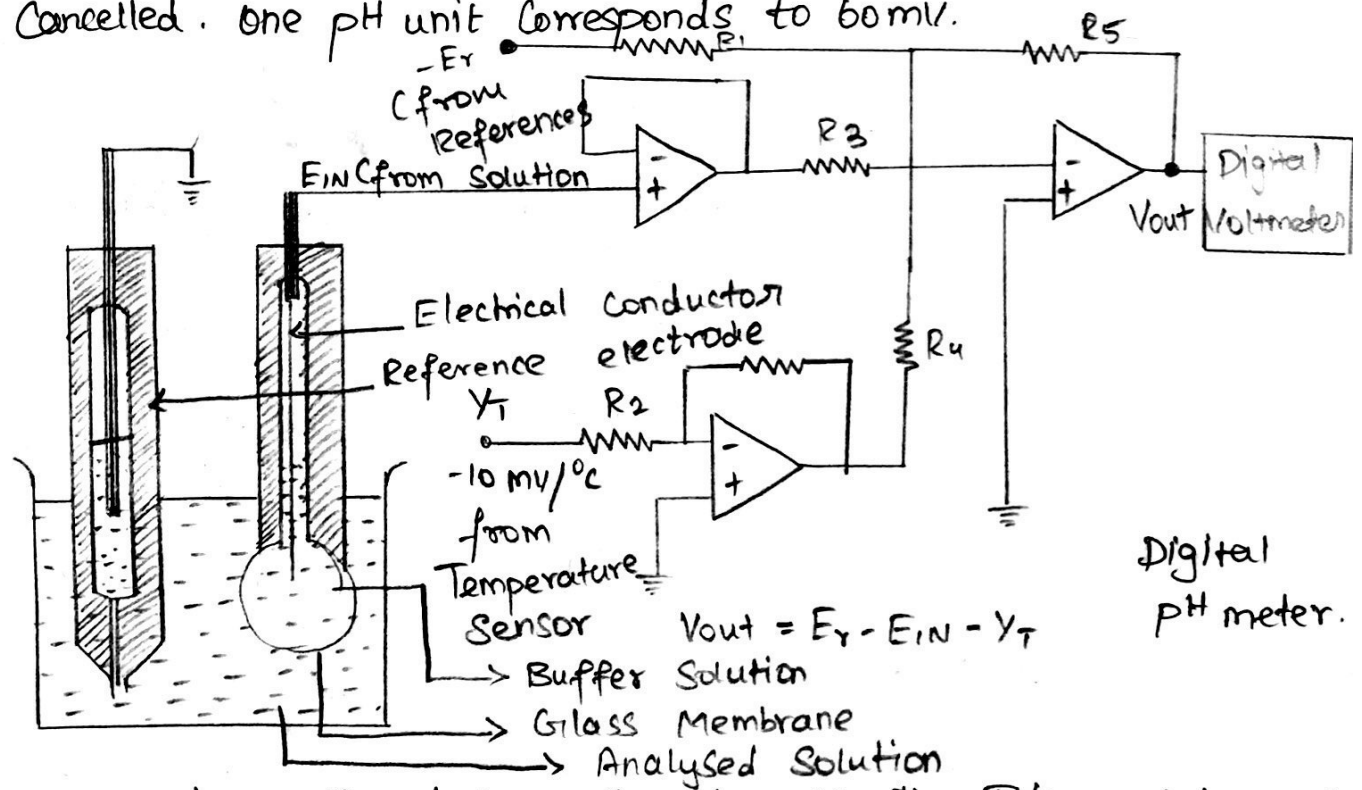 Cancelled. One pH unit Corresponds to 60mV.
R1
R5
-Er
(from
References
R3
EIN (from Solution
-
+
-
+
Digital
Voltmeter
Vout
Electrical Conductor
electrode
Reference
YT
R2
R4
-
+
-10 mV/°C
from
Temperature
Sensor
Vout = Er - EIN - YT
Digital
pH meter.
Buffer Solution
Glass Membrane
Analysed Solution